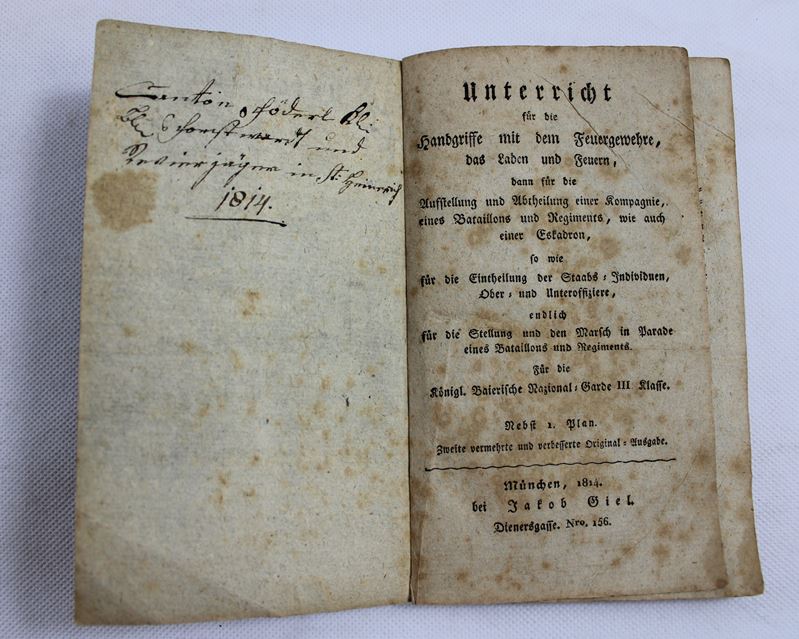 Föderl
und
Revierjäger in St: Heinrich
1814.
Unterricht
für die
Handgriffe mit dem Feuergewehre,
das Laden und Feuern,
dann für die
Aufstellung und Abtheilung einer Kompagnie,
eines Bataillons und Regiments, wie auch
einer Eskadron,
so wie
für die Eintheilung der Staabs-Individuen,
Ober- und Unteroffiziere,
endlich
für die Stellung und den Marsch in Parade
eines Bataillons und Regiments.
Für die
Königl. Baierische Nazional-Garde III Klasse.
Nebst 1. Plan.
Zweite vermehrte und verbesserte Original-Ausgabe.
München, 1814.
bei Jakob Giel.
Dienersgasse. Nro. 156.